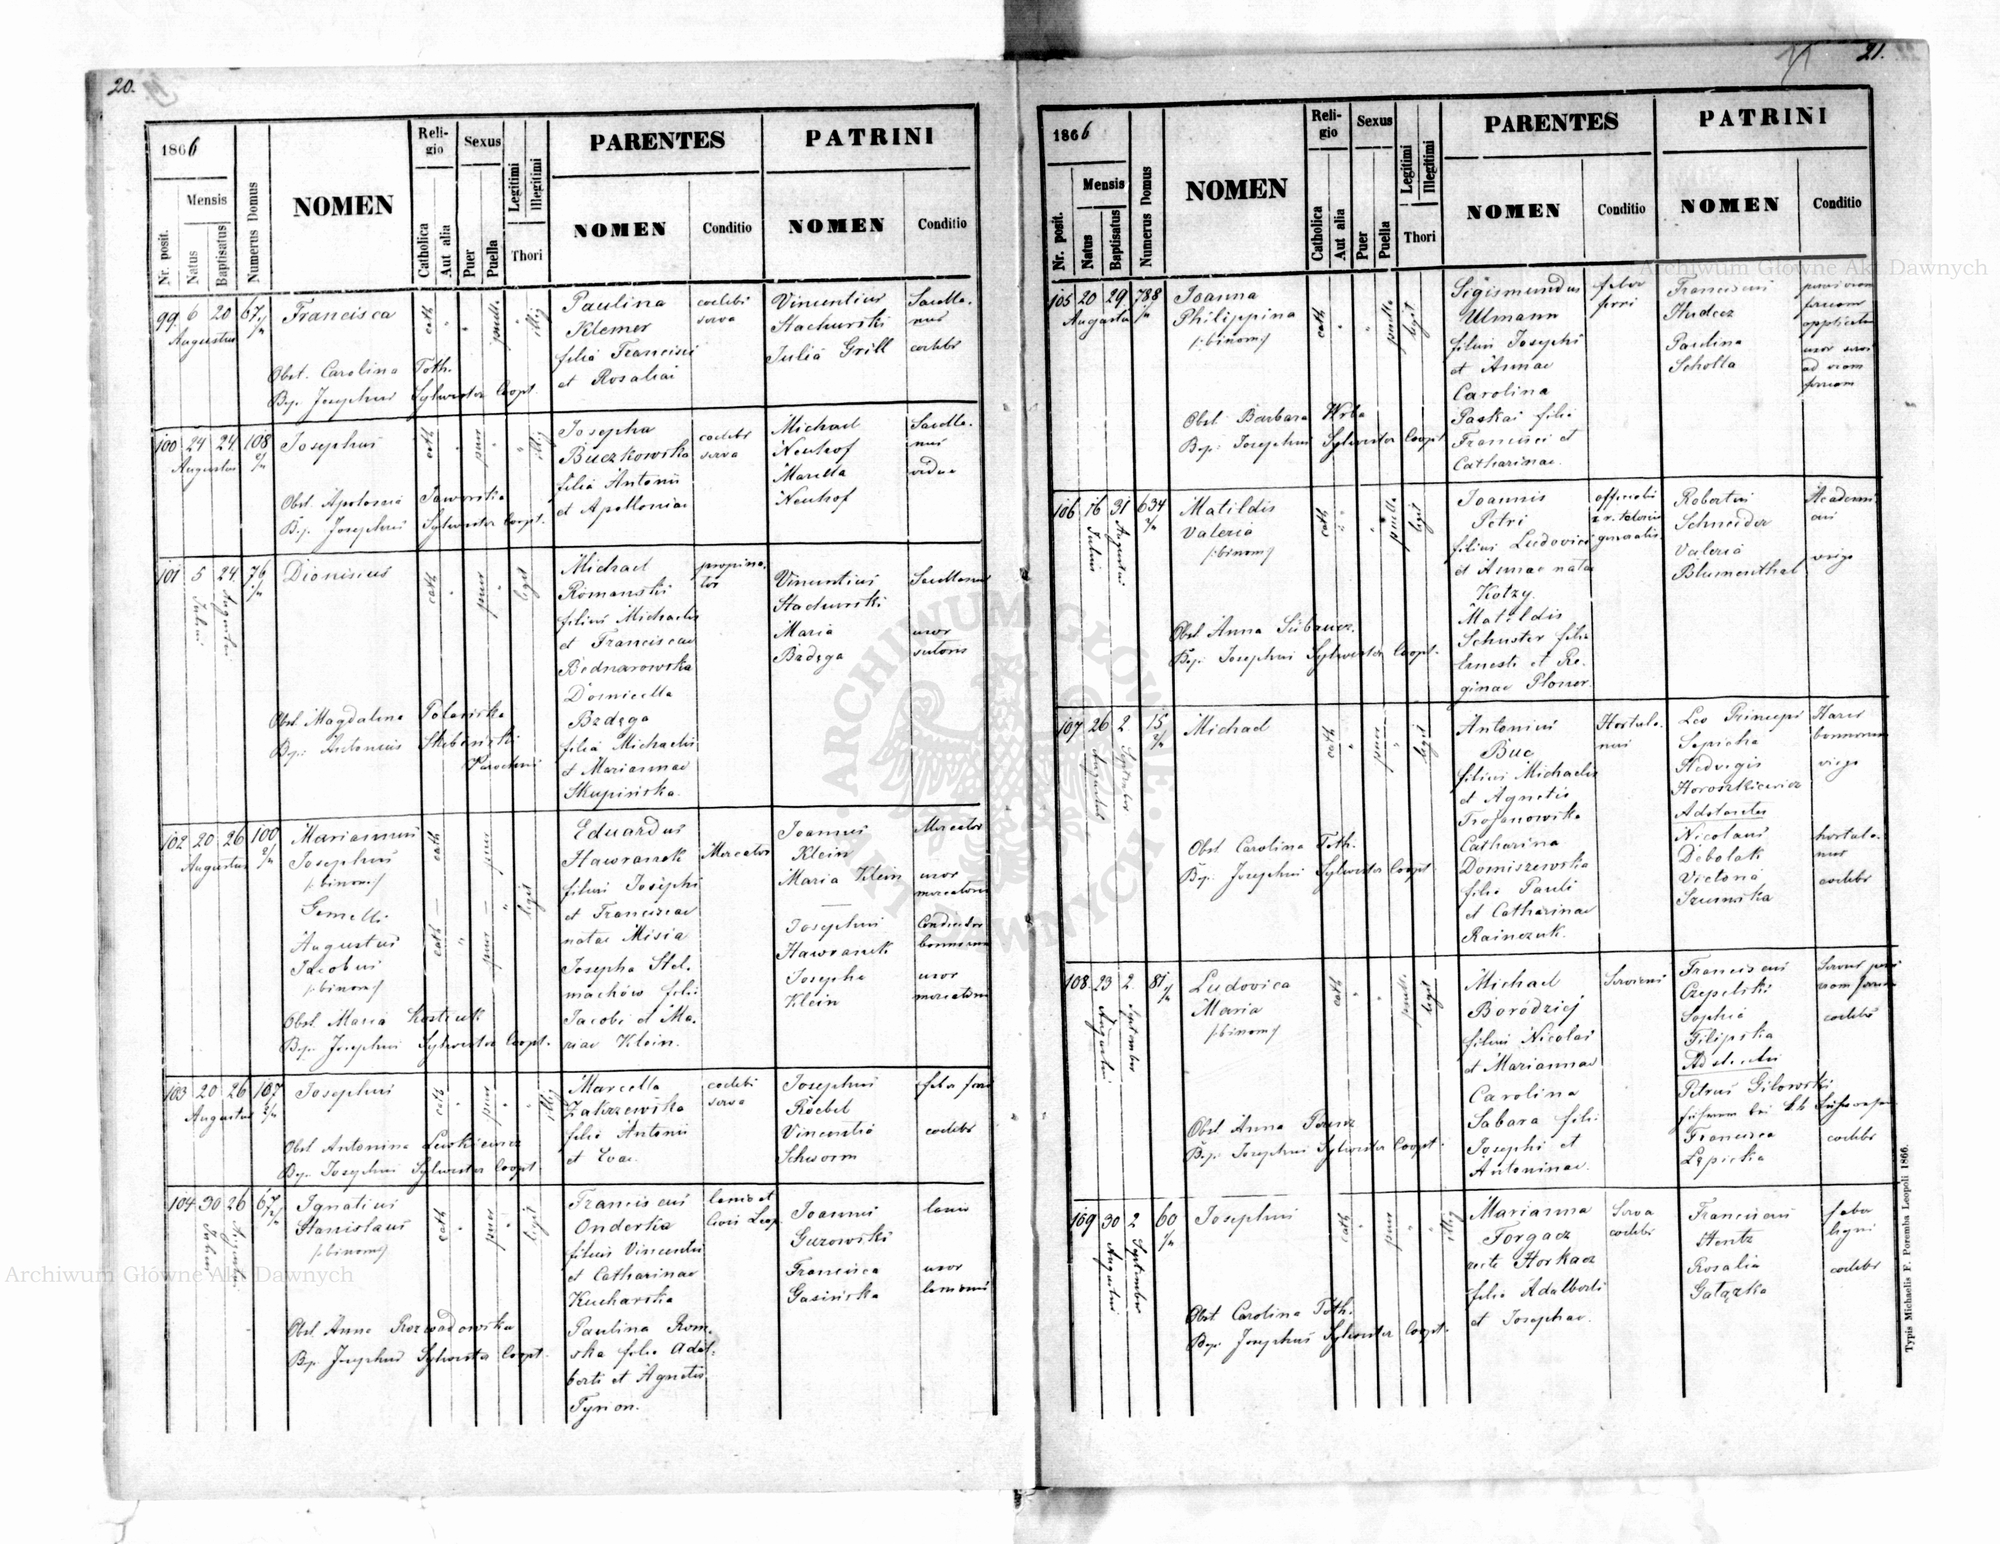 20.
1866
Nr. posit.
Mensis
Natus
Baptisatus
Numerus Domus
NOMEN
Religio
Catholica
Aut alia
Sexus
Puer
Puella
Legitimi
Illegitimi
Thori
PARENTES
NOMEN
Conditio
PATRINI
NOMEN
Conditio
99 6 20 67
Augustus
Francisca
cath
puella
illeg
Obst. Carolina Toth.
Bap. Josephus Sylwester Coopt.
Paulina
Klemer
filia Francisci
et Rosaliae
coelebs
serva
Vincentius
Stachurski
Julia Grill
coelebs
100 24 24 108
Augustus
Josephus
cath
puer
illeg
Obst. Apolonia Jaworska
Bap. Josephus Sylwester Coopt.
Josepha
Buczkowska
filia Antonii
et Apolloniae
coelebs
serva
Michael
Neuhof
Marella
Neuhof
vidua
101 5 24 76
Julius
Augustus
Dionisius
cath
puer
legit
Obst. Magdalena Polańska
Bap. Antonius Skibiński
Parochus
Michael
Romanski
filius Michaelis
et Franciscae
Bednarowska
Domicella
Bzdęga
filia Michaelis
et Mariannae
Skupińska.
propinator
Vincentius
Stachurski
Maria
Bzdęga
uxor
sutoris
102 20 26 100
Augustus
Mariannus
Josephus
/:binom:/
Gemelli
Augustus
Jacobus
/:binom:/
cath
puer
legit
Obst. Maria Kostiuk
Bap. Josephus Sylwester Coopt.
Eduardus
Hawranek
filius Josephi
et Franciscae
natae Misia
Josepha Stel-
machów filia
Jacobi et Ma-
riae Klein.
Mercator
Joannes
Klein
Maria Klein
Josephus
Hawranek
Josepha
Klein
Mercator
uxor
mercatoris
Conductor
bonorum
uxor
mercatoris
103 20 26 107
Augustus
Josephus
cath
puer
illeg
Obst. Antonina Luskiewicz
Bap. Josephus Sylwester Coopt.
Marcella
Zakrzewska
filia Antonii
et Evae.
coelebs
serva
Josephus
Roebel
Vincentia
Schworm
coelebs
104 30 26 67
Julius
Augustus
Ignatius
Stanislaus
/:binom:/
cath
puer
legit
Obst. Anna Rozwadowska
Bap. Josephus Sylwester Coopt.
Franciscus
Onderka
filius Vincentii
et Catharinae
Kucharska
Paulina Rom-
ska filia Adal-
berti et Agnetis
Tyrion.
lanio et
Civis Leop
Joannes
Guzowski
Francisca
Gasińska
lanio
uxor
lanionis
21.
1866
Nr. posit.
Mensis
Natus
Baptisatus
Numerus Domus
NOMEN
Religio
Catholica
Aut alia
Sexus
Puer
Puella
Legitimi
Illegitimi
Thori
PARENTES
NOMEN
Conditio
PATRINI
NOMEN
Conditio
105 20 29 788
Augustus
Joanna
Philippina
/:binom:/
cath
puella
legit
Obst. Barbara Wrba
Bap: Josephus Sylwester Coopt
Sigismundus
Ulmann
filius Josephi
et Annae
Carolina
Paskai filia
Francisci et
Catharinae.
faber
ferri
Franciscus
Hudcez
Paulina
Scholta
106 16 31 634
Julius
Augustus
Matildis
Valeria
/:binom:/
cath
puella
legit
Obst Anna
Bap: Josephus Sylwester Coopt.
Joannis
Petri
filius Ludovici
et Annae natae
Kotzy.
Matildis
Schuster filia
Ernesti et Re-
ginae Ploner.
Robertus
Schneider
Valeria
Blumenthal
virgo
107 26 2 15
Augustus
September
Michael
cath
puer
legit
Obst Carolina Toth.
Bap. Josephus Sylwester Coopt.
Antonius
Buc
filius Michaelis
et Agnetis
Trojanowska
Catharina
Domiszewska
filia Pauli
et Catharinae
Rainczuk.
Hortula-
nus
Leo Princeps
Sapieha
Hedvigis
Horoszkiewicz
Adstantes
Nicolaus
Debolak
Victoria
Szumska
Haeres
bonorum
virgo
hortula-
nus
coelebs
108 23 2 81
Augustus
September
Ludovica
Maria
/:binom:/
cath
puella
legit
Obst Anna Tarnuz
Bap: Josephus Sylwester Coopt.
Michael
Boródziej
filius Nicolai
et Mariannae
Carolina
Sabara filia
Josephi et
Antoninae.
Serviens
Franciscus
Czepelski
Sophia
Filipska
Adstantes
Petrus Gilowski
Francisca
Łępicka
coelebs
coelebs
109 30 2 60
Augustus
September
Josephus
cath
puer
illeg
Obst Carolina Toth.
Bap: Josephus Sylwester Coopt.
Marianna
Forgacz
recte Horkacz
filia Adalberti
et Josephae.
Serva
coelebs
Franciscus
Hentz
Rosalia
Gałązka
faber
ligni
coelebs
Typis Michaelis F. Poremba Leopoli 1866.
Archiwum Główne Akt Dawnych
Archiwum Główne Akt Dawnych
ARCHIWUM GŁÓWNE AKT DAWNYCH